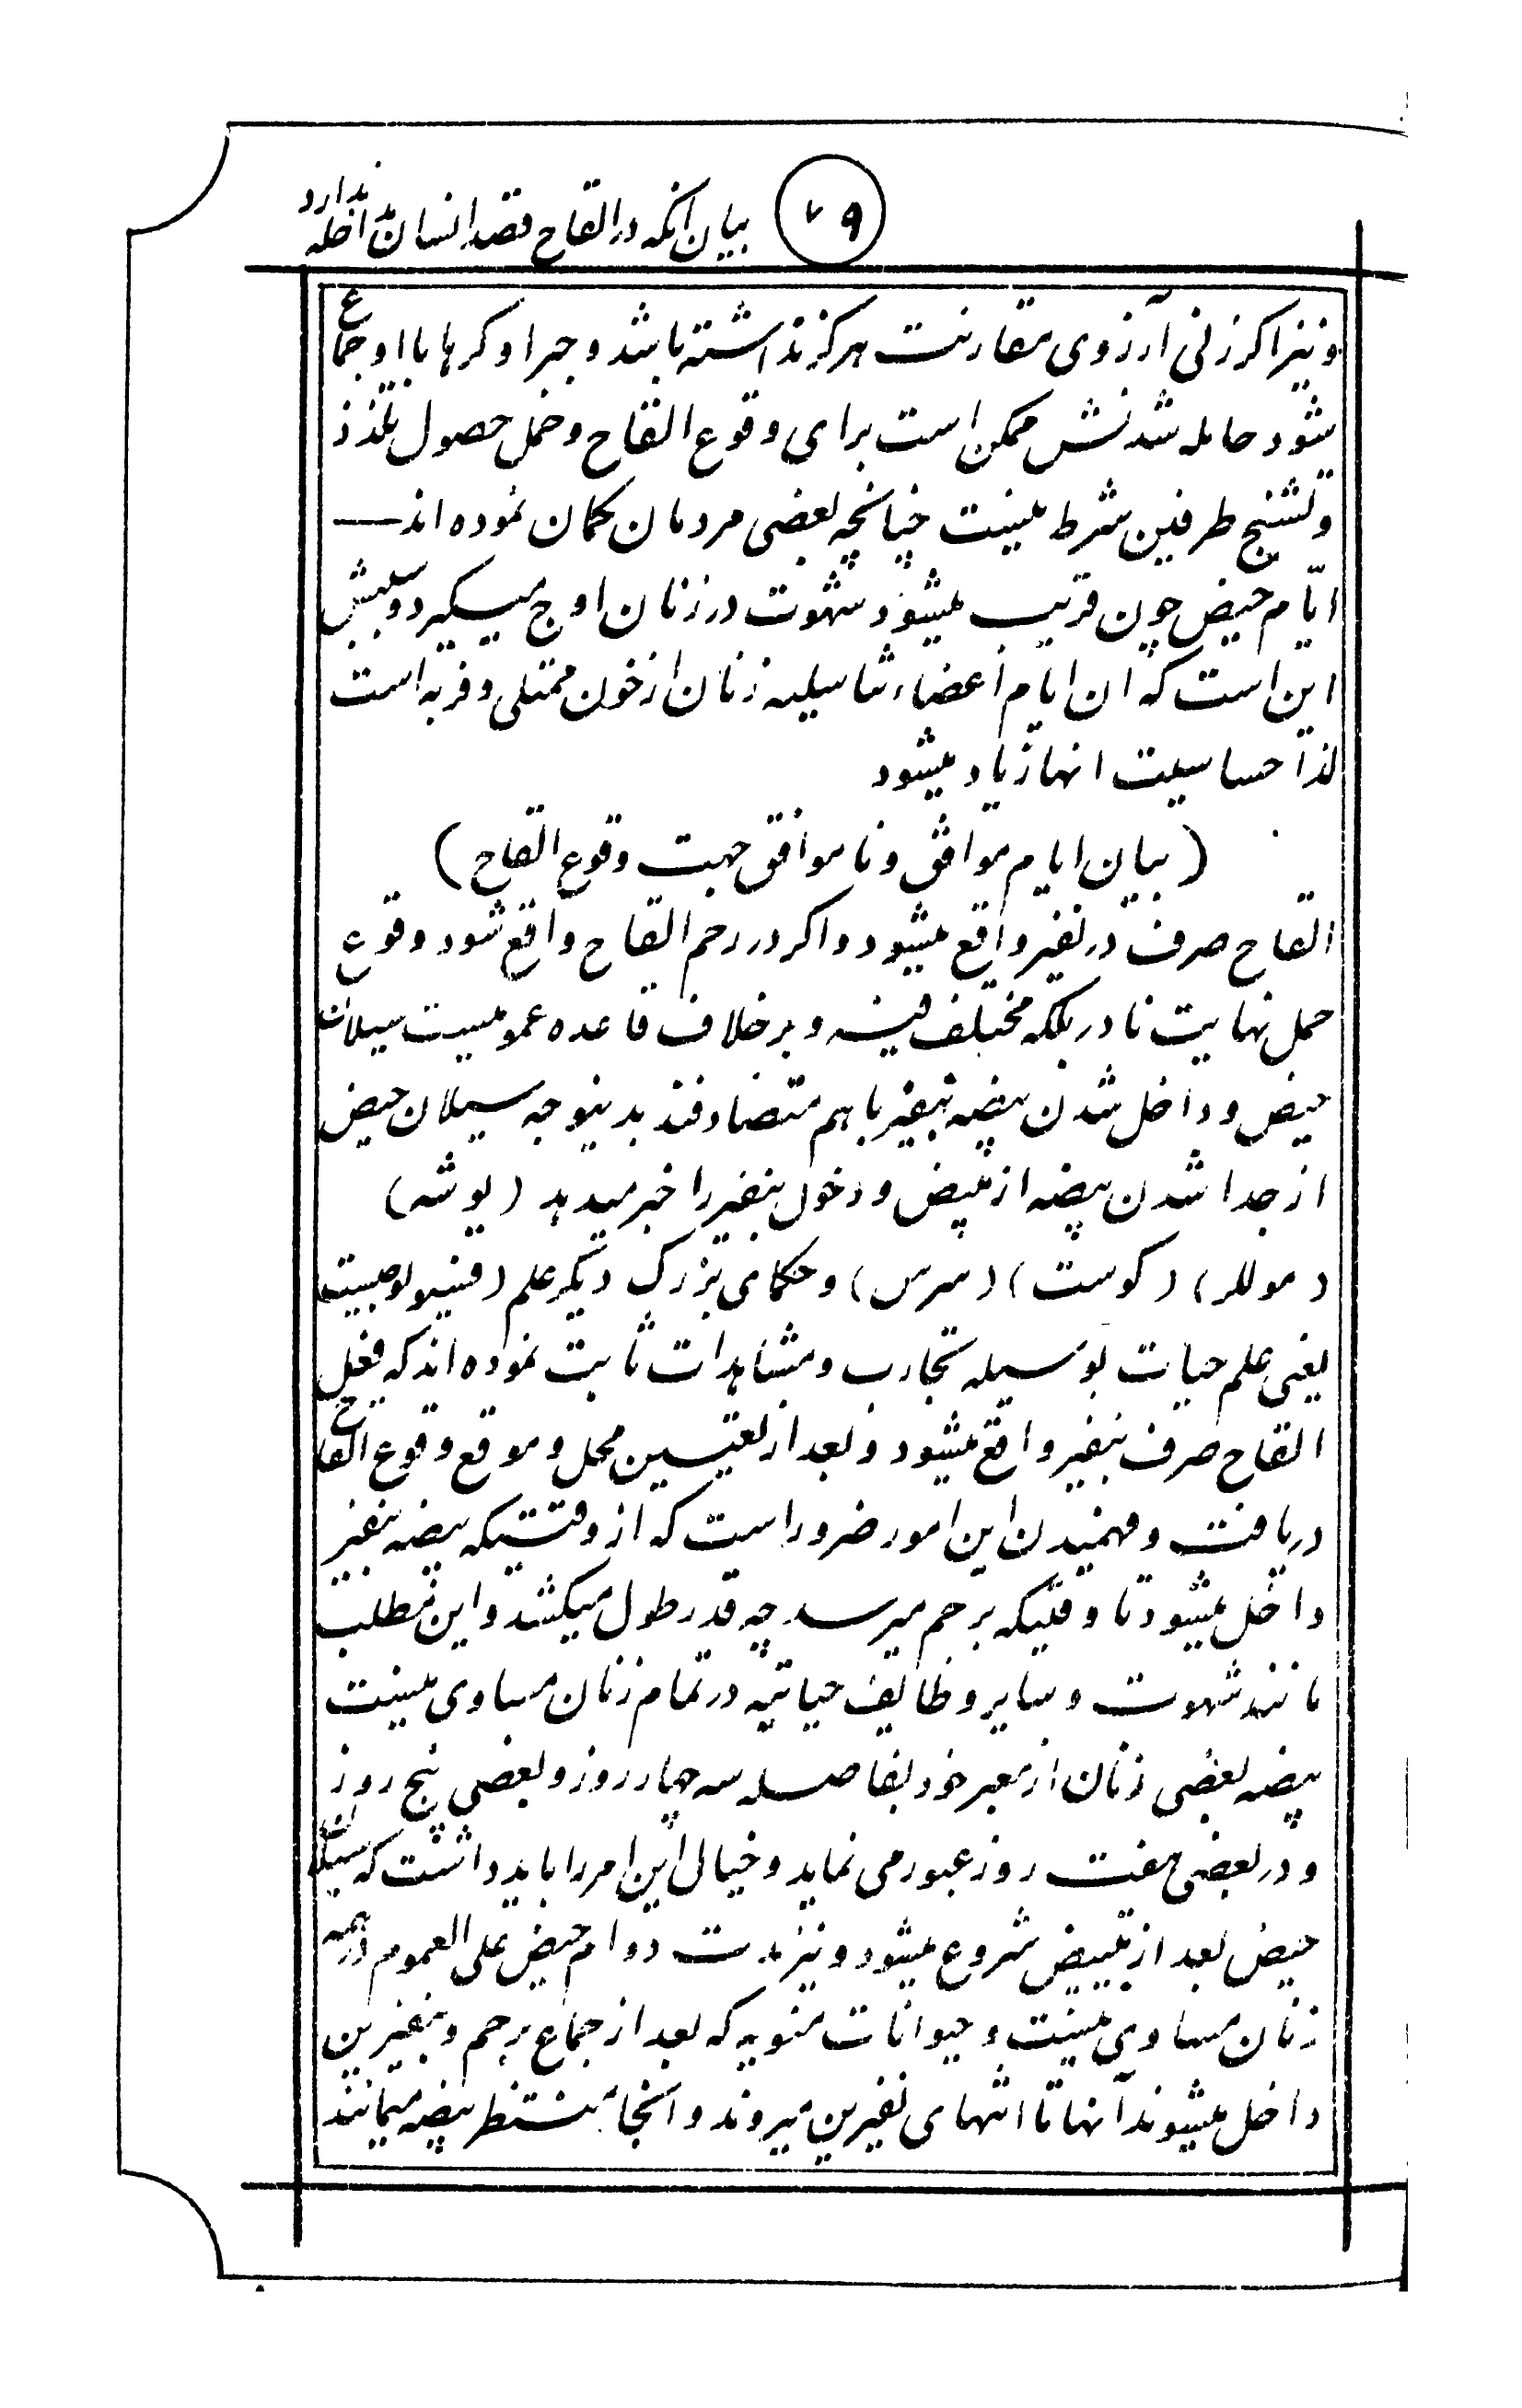 ۷۹
بیان آنکه در القاح قصد انسان مداخله ندارد
و نیز اگر زنی آرزوی مقارنت هرگز نداشته باشد و جبرا و کرها با او جماع
شود حامله شدنش ممکن است برای وقوع القاح و حمل حصول تلذذ
و تشنج طرفین شرط نیست چنانچه بعضی مردمان گمان نموده اند
ایّام حیض چون قریب میشود شهوت در زنان اوج میگیرد و سببش
این است که ان ایام اعضاء تناسلیه زنان از خون ممتلی و فربه است
لذا حساسیت انها زیاد میشود
(بیان ایام موافق و نا موافق جهت وقوع القاح)
القاح صرف در نفیر واقع میشود و اگر در رحم القاح واقع شود وقوع
حمل نهایت نادر بلکه مختلف فیه و بر خلاف قاعده عمومیست سیلان
حیض و داخل شدن بیضه بنفیر با هم متصادفند بدینوجه سیلان حیض
از جدا شدن بیضه از مبیض و دخول بنفیر را خبر میدهد (پوشه)
(موللر) (کوست) (سرس) و حکمای بزرگ دیگر علم (فیسیولوجیت
یعنی علم حیات بوسیله تجارب و مشاهدات ثابت نموده اند که فعل
القاح صرف بنفیر واقع میشود و بعد از تعیین محل و موقع وقوع القاح
دریافت و فهمیدن این امور ضرور است که از وقتیکه بیضه بنفیر
داخل میشود تا وقتیکه برحم میرسد چه قدر طول میکشد و این مطلب
مانند شهوت و سایر وظایف حیاتیه در تمام زنان مساوی نیست
بیضه بعضی زنان از معبر خود بفاصله سه چهار روز و بعضی پنج روز
و در بعضی هفت روز عبور می نماید و خیال این امر را باید داشت که سیلان
حیض بعد از تبییض شروع میشود و نیز مدت دوام حیض علی العموم در همه
زنان مساوی نیست و حیوانات منویه که بعد از جماع برحم و بنفیرین
داخل میشوند آنها تا انتهای نفیرین میروند و آنجا منتظر بیضه میمانند